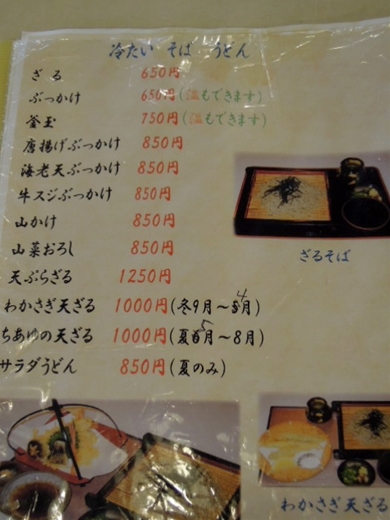 冷たい そば うどん
ざる 650円
ぶっかけ 650円(温もできます)
釜玉 750円(温もできます)
唐揚げぶっかけ 850円
海老天ぶっかけ 850円
牛スジぶっかけ 850円
山かけ 850円
山菜おろし 850円
天ぷらざる 1250円
わかさぎ天ざる 1000円(冬9月～4月)
ちあゆの天ざる 1000円(夏5月～8月)
サラダうどん 850円(夏のみ)
ざるそば
わかさぎ天ざる